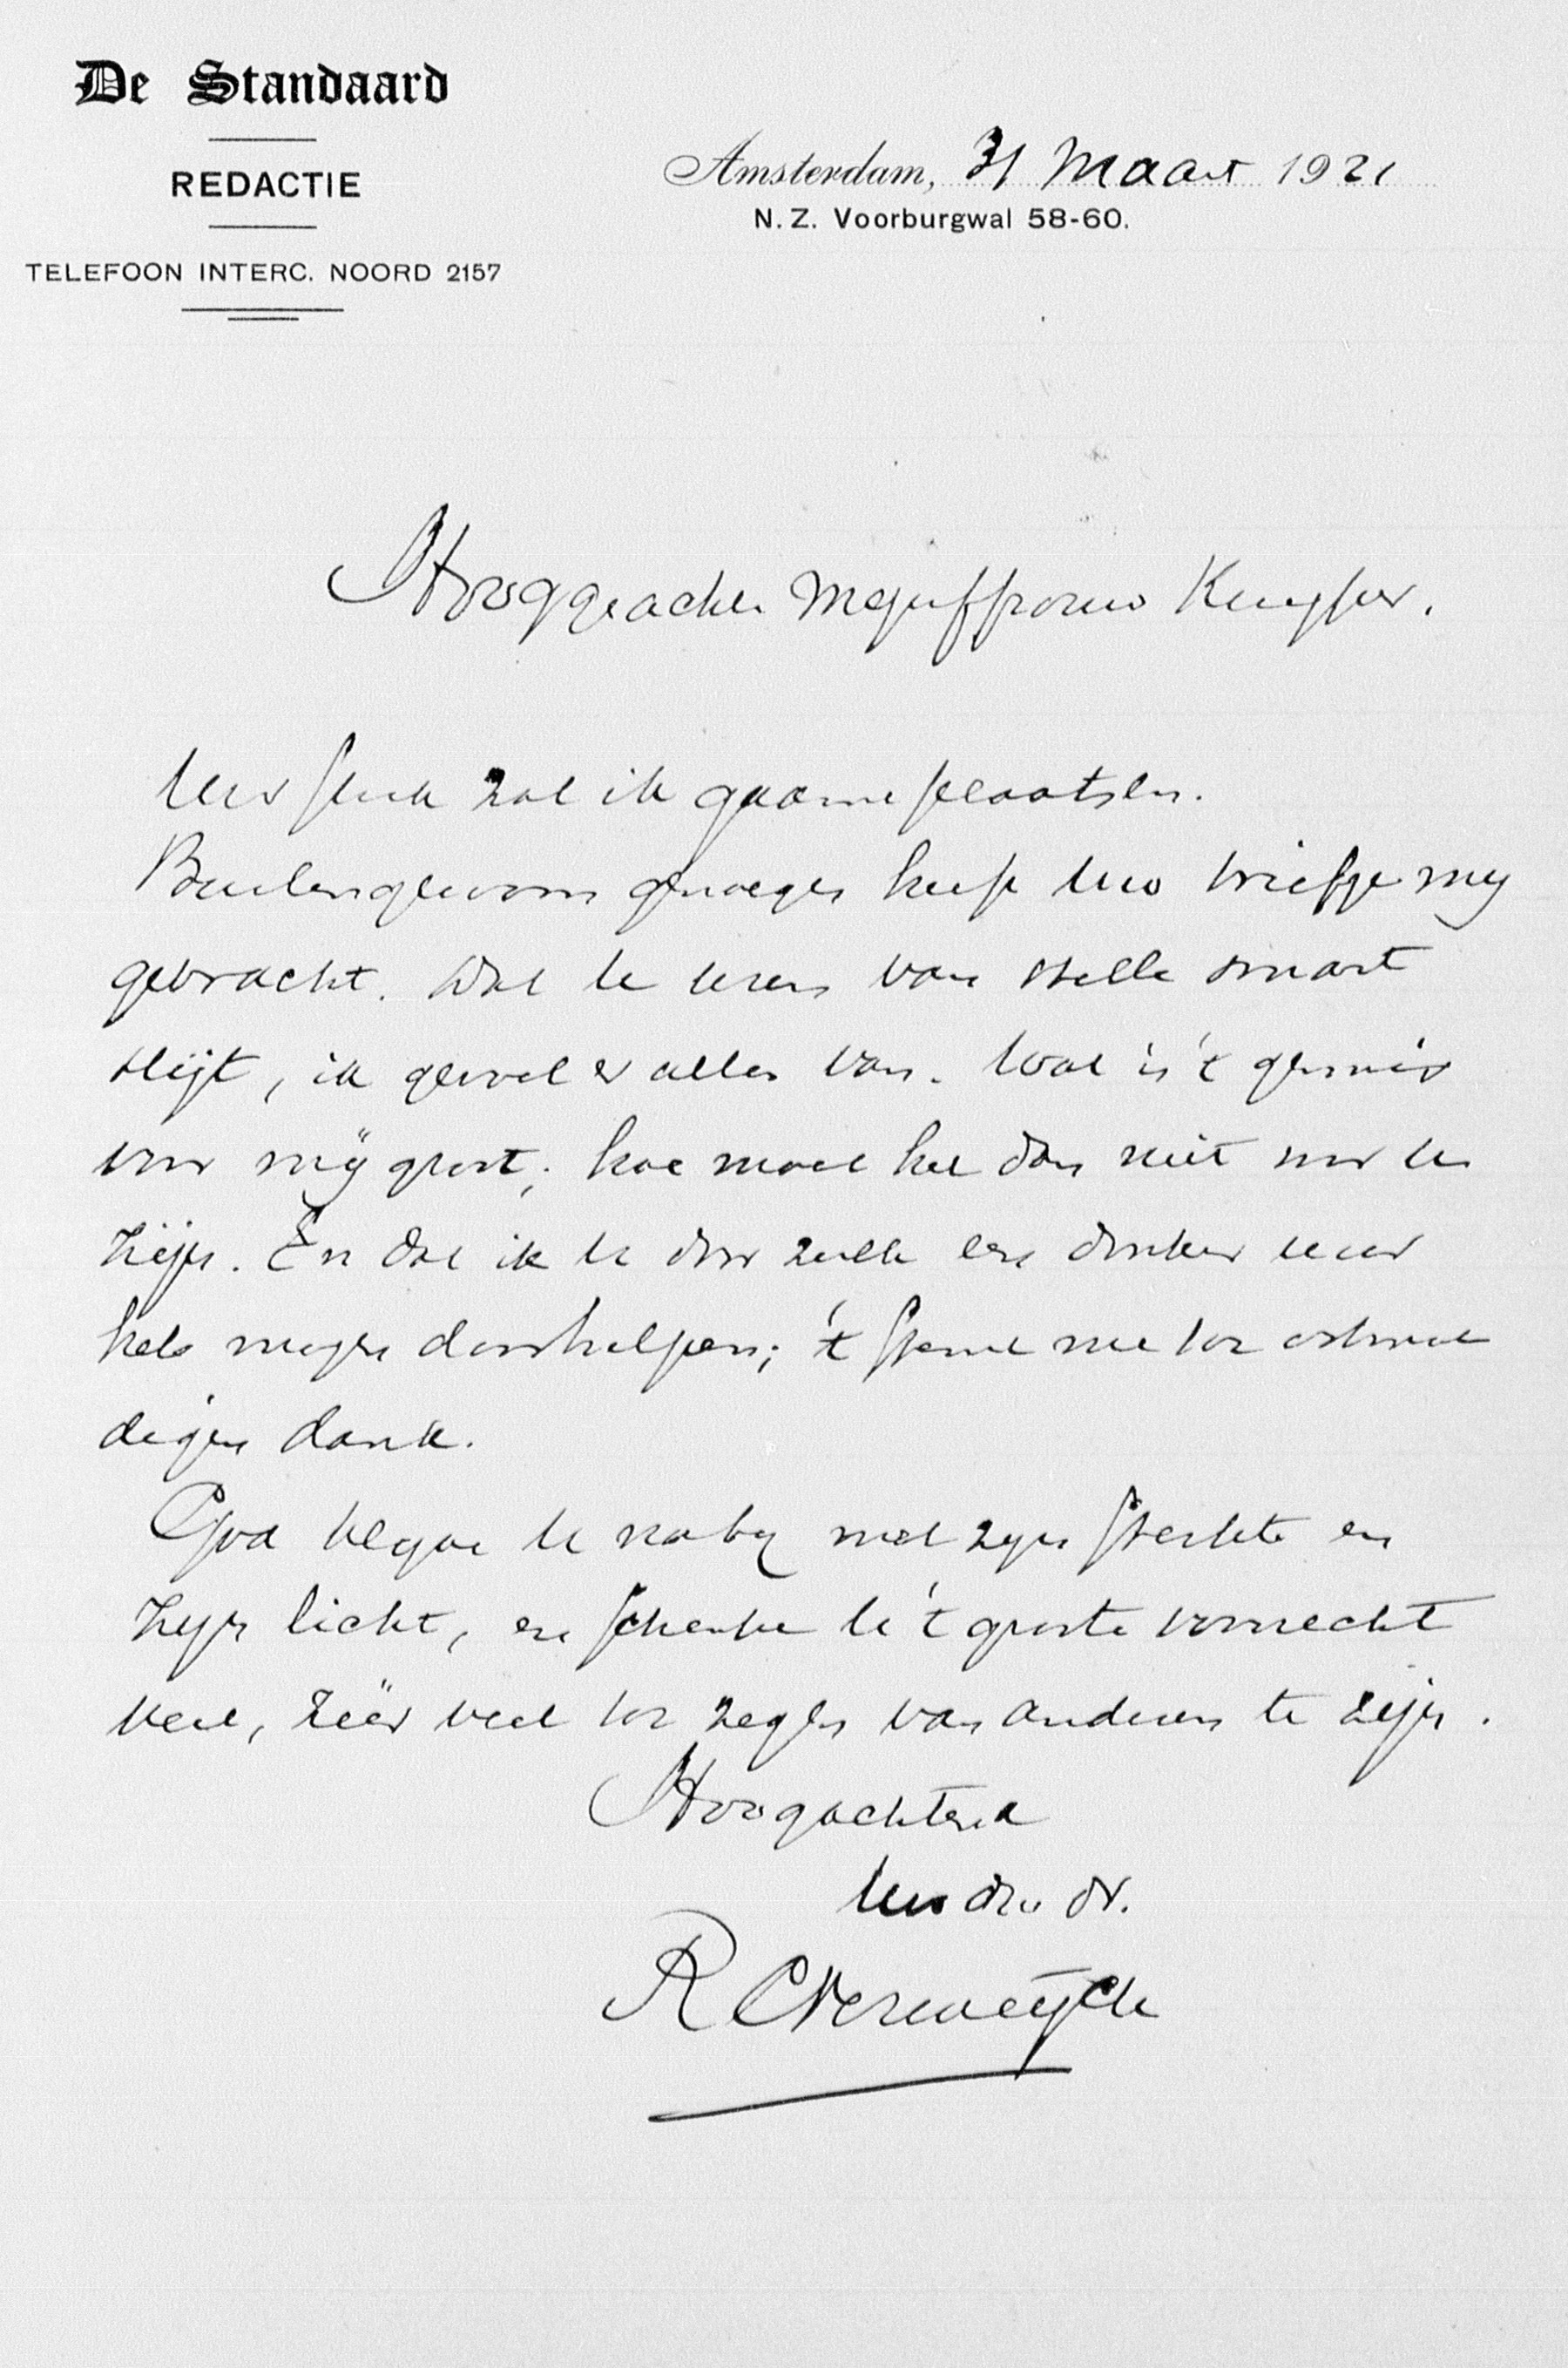 De Standaard
REDACTIE
TELEFOON INTERC. NOORD 2157
Amsterdam, 31 Maart 1921
N. Z. Voorburgwal 58-60.
Hooggeachte Mejuffrouw Kuyper.
Uw stuk zal ik gaarne plaatsen.
Buitengewoon genoegen heeft Uw briefje mij
gebracht. Wat U uren van stille smart
slijt, ik gevoel er alles van. Wat is 't gemis
voor mij groot; hoe moet het dan niet voor U
zijn. En dat ik U door zulk een donker uur
heb mogen doorhelpen; 't stemt me tot ootmoe
digen dank.
God blijve U nabij met zijn sterkte en
Zijn licht, en schenke U 't groote voorrecht
veel, zéér veel tot zegen van anderen te zijn.
Hoogachtend
Uw dw. dr.
R C Verweyck